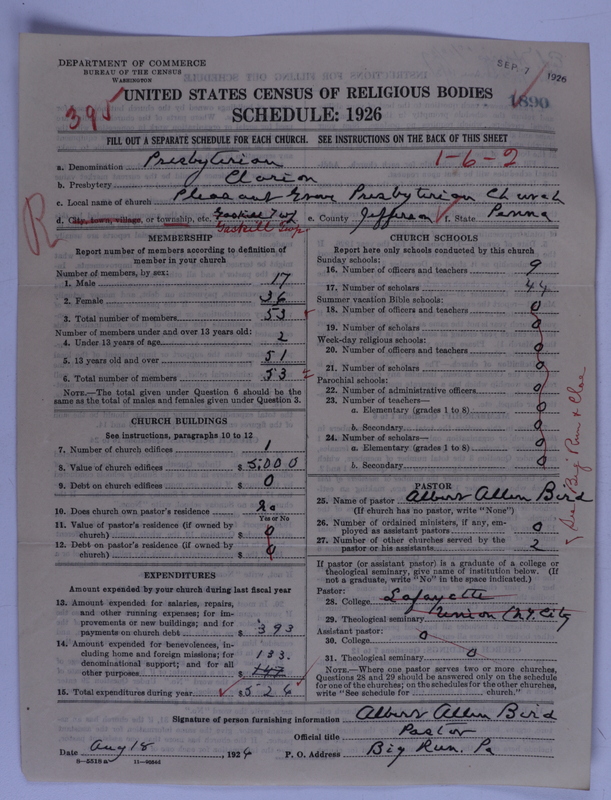 DEPARTMENT OF COMMERCE
BUREAU OF THE CENSUS
WASHINGTON
SEP. 7 1926
1890
395
UNITED STATES CENSUS OF RELIGIOUS BODIES
SCHEDULE: 1926
FILL OUT A SEPARATE SCHEDULE FOR EACH CHURCH. SEE INSTRUCTIONS ON THE BACK OF THIS SHEET
1-6-2
a. Denomination Presbyterian
b. Presbytery Clarion
c. Local name of church Pleasant Grove Presbyterian Church
R
d. City, town, village, or township, etc. Gaskill Twp e. County Jefferson f. State Penna
Gaskill Twp
MEMBERSHIP
Report number of members according to definition of
member in your church
Number of members, by sex:
1. Male 17
2. Female 36
3. Total number of members 53
Number of members under and over 13 years old:
4. Under 13 years of age 2
5. 13 years old and over 51
6. Total number of members 53
NOTE.—The total given under Question 6 should be the
same as the total of males and females given under Question 3.
CHURCH BUILDINGS
See instructions, paragraphs 10 to 12
7. Number of church edifices 1
8. Value of church edifices $ 5000
9. Debt on church edifices $ 0
10. Does church own pastor's residence? No
Yes or No
11. Value of pastor's residence (if owned by
church) $ 0
12. Debt on pastor's residence (if owned by
church) $ 0
EXPENDITURES
Amount expended by your church during last fiscal year
13. Amount expended for salaries, repairs,
and other running expenses; for im-
provements or new buildings; and for
payments on church debt $ 393
14. Amount expended for benevolences, in-
cluding home and foreign missions; for
denominational support; and for all
other purposes $ 133.
15. Total expenditures during year $ 526
CHURCH SCHOOLS
Report here only schools conducted by this church
Sunday schools:
16. Number of officers and teachers 9
17. Number of scholars 44
Summer vacation Bible schools:
18. Number of officers and teachers 0
19. Number of scholars 0
Week-day religious schools:
20. Number of officers and teachers 0
21. Number of scholars 0
Parochial schools:
22. Number of administrative officers 0
23. Number of teachers—
a. Elementary (grades 1 to 8) 0
b. Secondary 0
24. Number of scholars—
a. Elementary (grades 1 to 8) 0
b. Secondary 0
See Big Run & Cloe
PASTOR
25. Name of pastor Albert Allen Bird
(If church has no pastor, write "None")
26. Number of ordained ministers, if any, em-
ployed as assistant pastors 0
27. Number of other churches served by the
pastor or his assistants 2
If pastor (or assistant pastor) is a graduate of a college or
theological seminary, give name of institution below. (If
not a graduate, write "No" in the space indicated.)
Pastor:
28. College Lafayette
29. Theological seminary Union N.Y. City
Assistant pastor:
30. College 0
31. Theological seminary 0
NOTE.—Where one pastor serves two or more churches,
Questions 28 and 29 should be answered only on the schedule
for one of the churches; on the schedules for the other churches,
write "See schedule for church."
Signature of person furnishing information Albert Allen Bird
Official title Pastor
Date Aug 18, 1926 P. O. Address Big Run. Pa
8—5518a